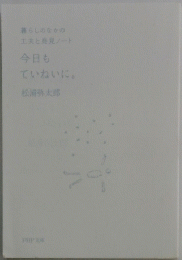 暮らしのなかの
工夫と発見ノート
今日も
ていねいに。
松浦弥太郎
PHP文庫